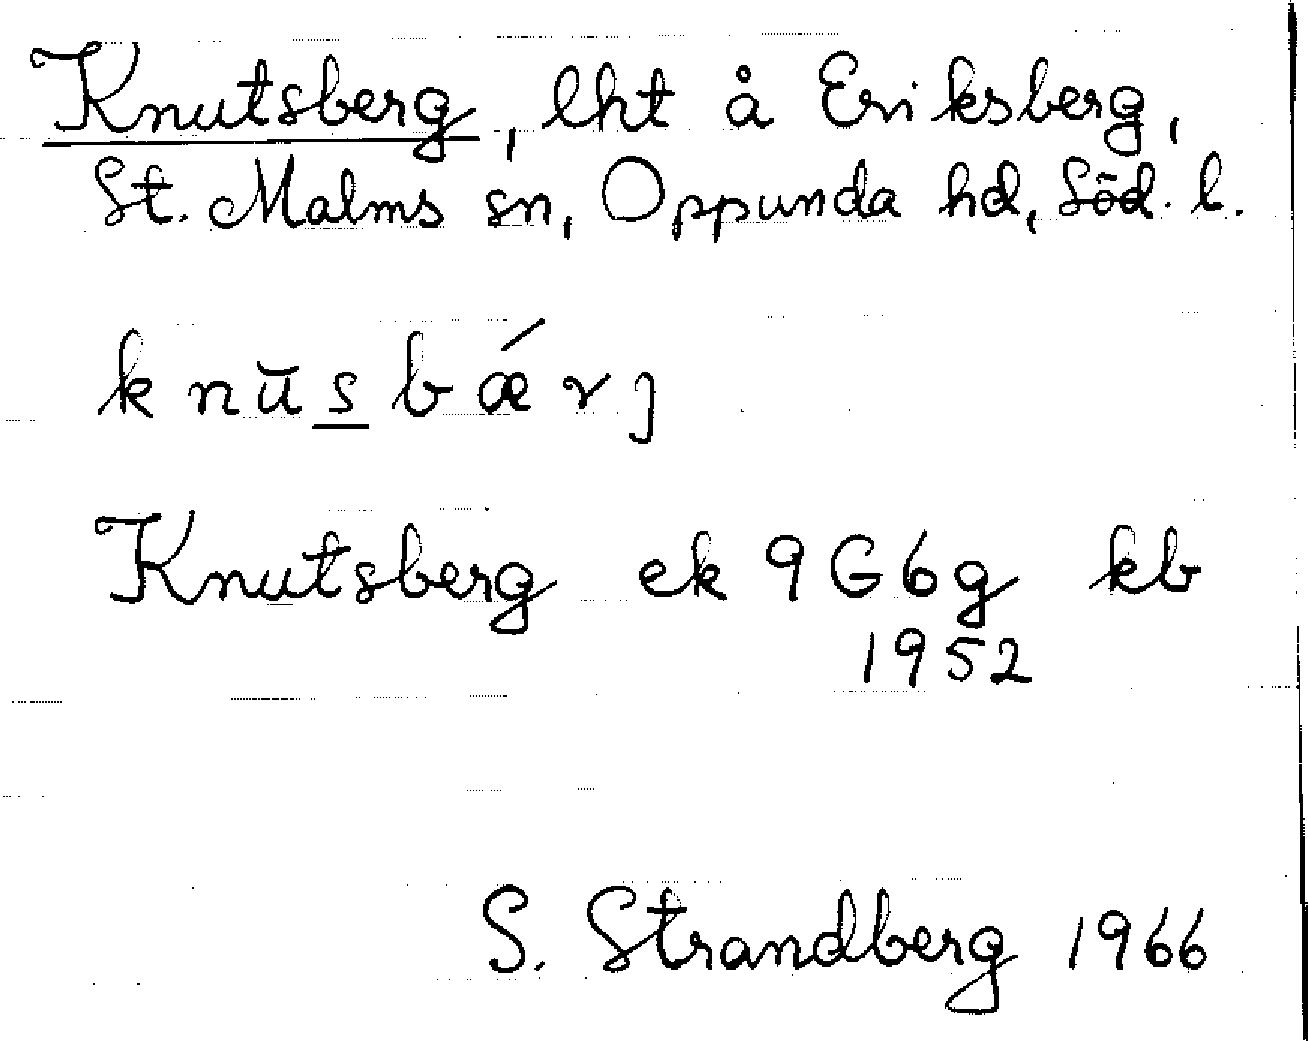 Knutsberg, lht å Eriksberg,
St. Malms sn, Oppunda hd, Söd. l.
knūsbǽrj
Knutsberg ek 9G6g kb
1952
S. Strandberg 1966